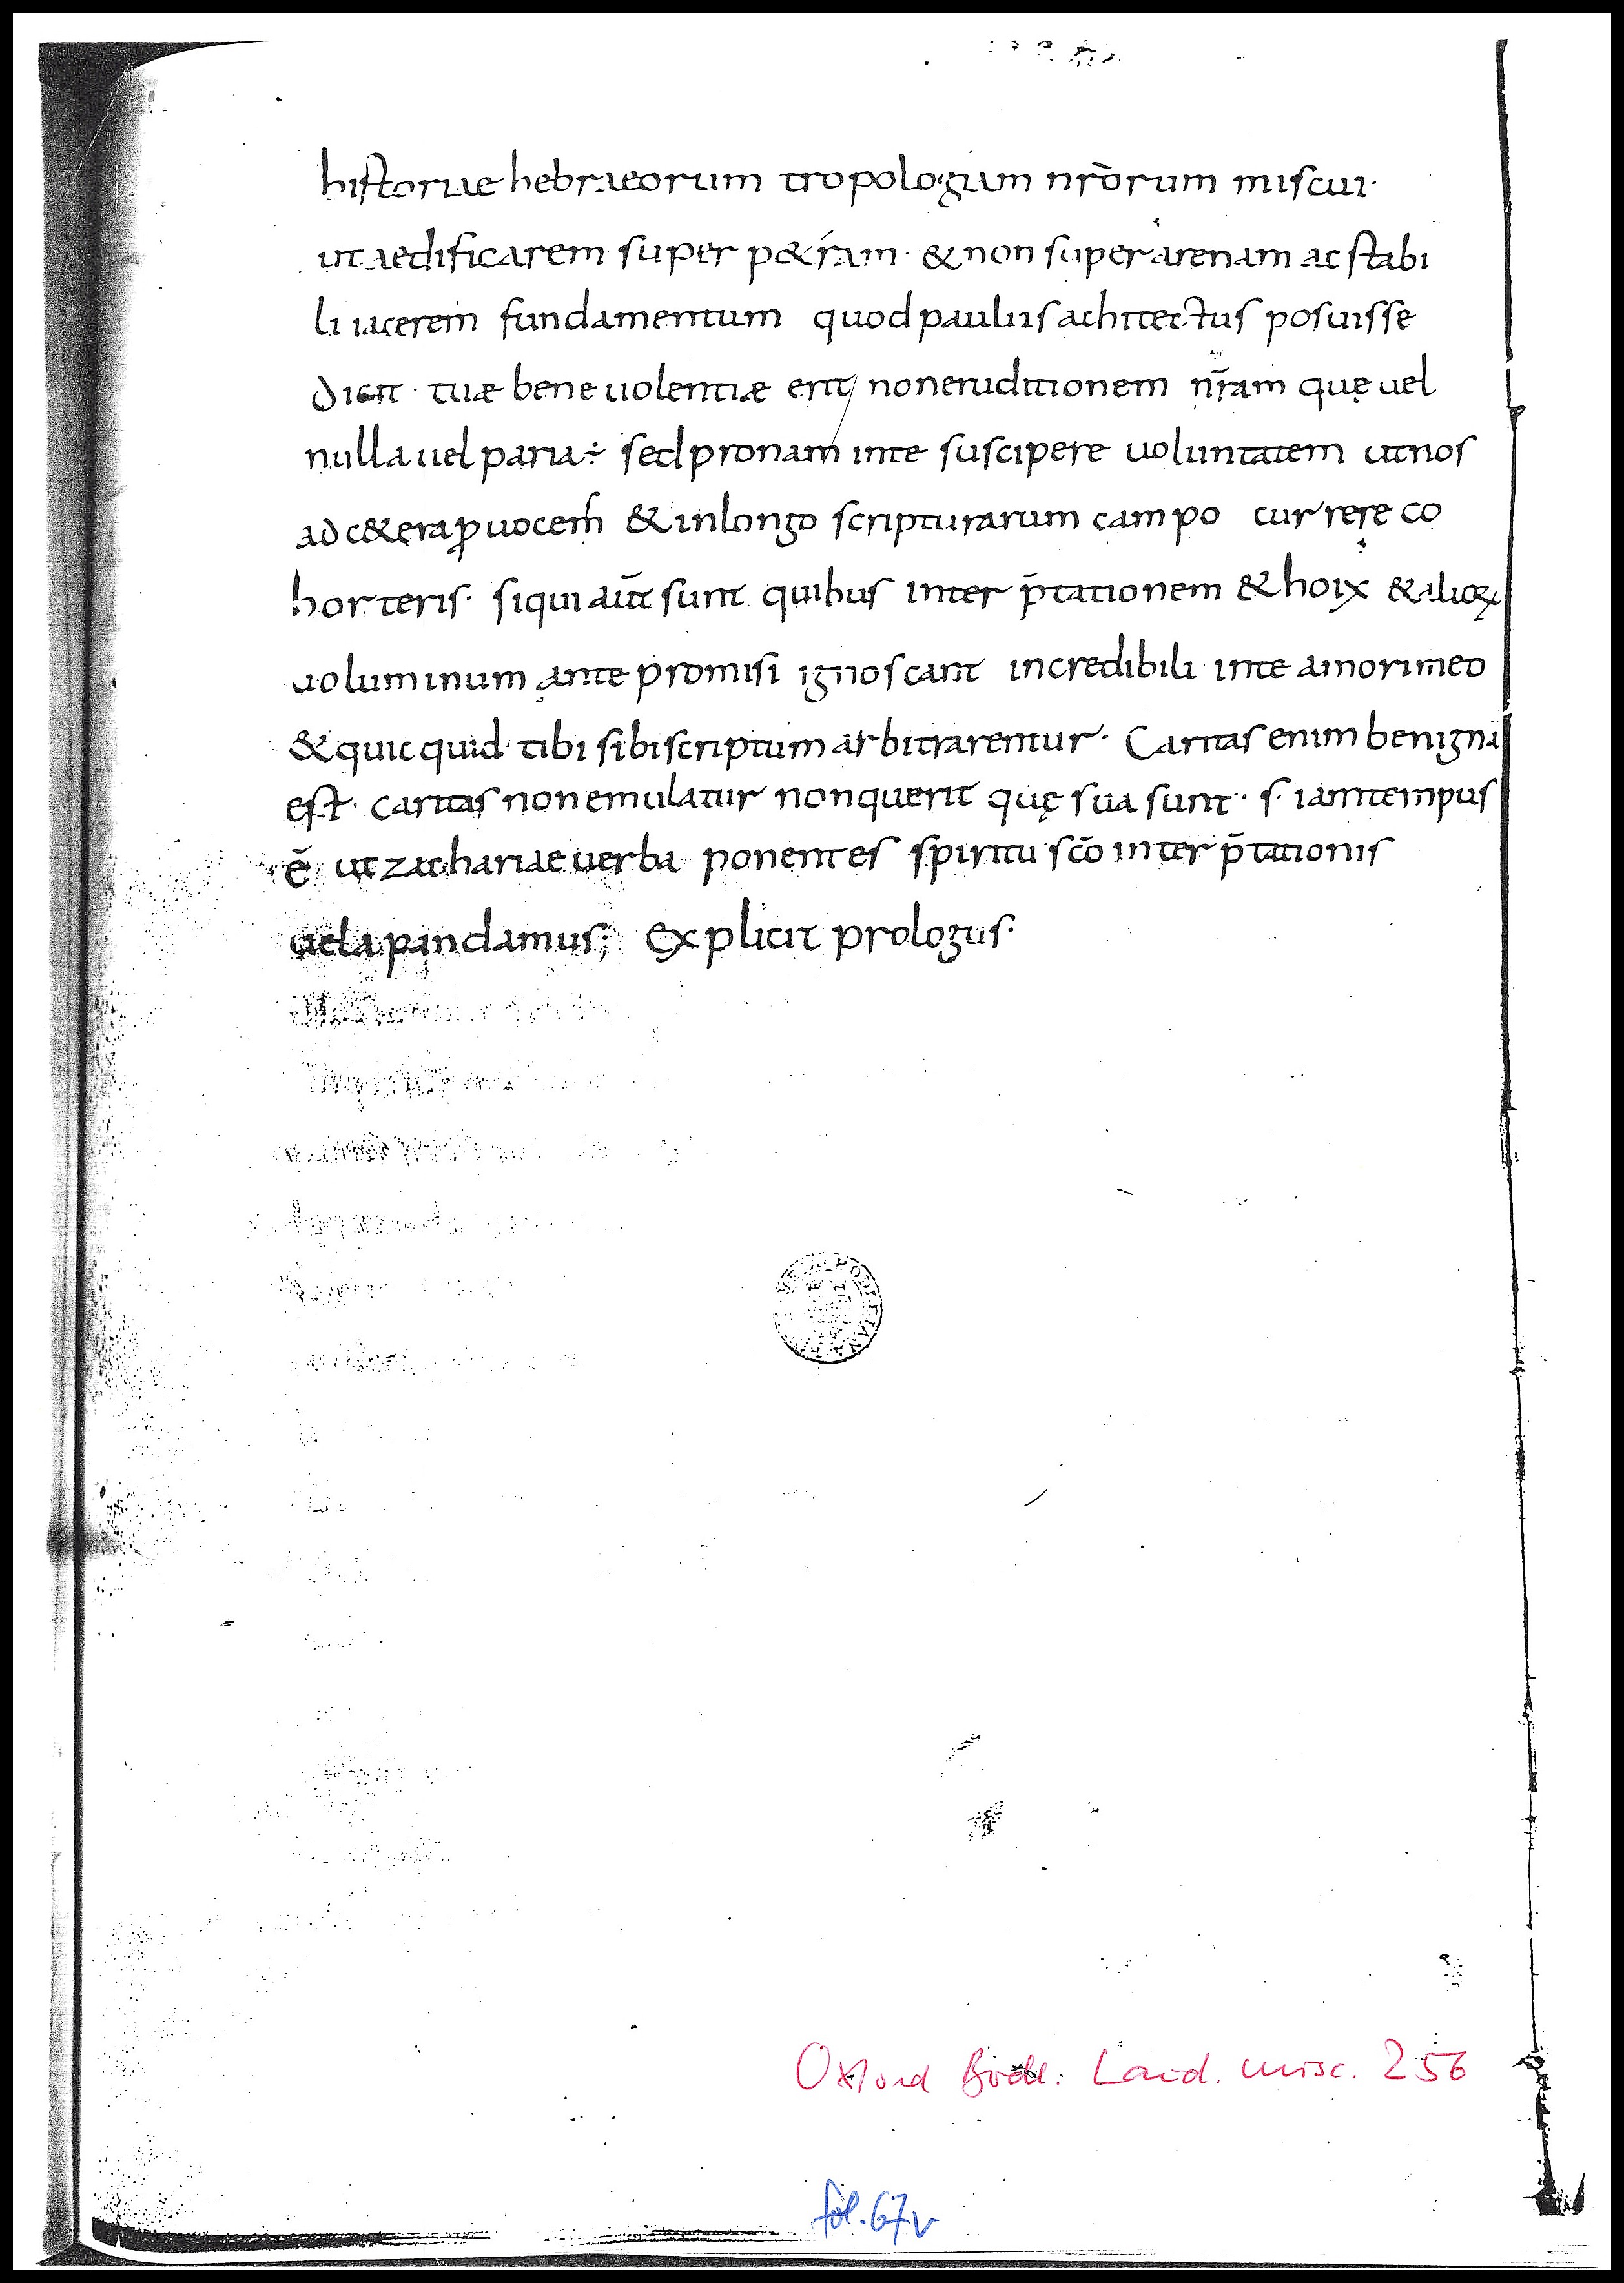 historiae hebraeorum tropologiam nr̄orum miscui·
ut aedificarem super p&ram· & non super arenam ac stabi
li iacerem fundamentum quod paulus achitectus posuisse
dicit· tuæ beneuolentiæ erit non eruditionem nr̄am quę uel
nulla uel paria ÷ sed pronam in te suscipere uoluntatem ut nos
ad c&era ꝓuocem̄ & in longo scripturarum campo currere co
horteris· siqui aūt sunt quibus interp̄tationem & hoix & alioꝝ
uoluminum ante promisi ignoscant incredibili in te amori meo
& quicquid tibi sibi scriptum arbitrarentur· Caritas enim benigna
est· caritas non emulatur non querit quę sua sunt· s· iam tempus
ē ut zachariae uerba ponentes spiritu sc̄o interp̄tationis
uela pandamus; explicit prologus·
BODLEIANA
Oxford Bodl. Laud. misc. 256
fol. 67v